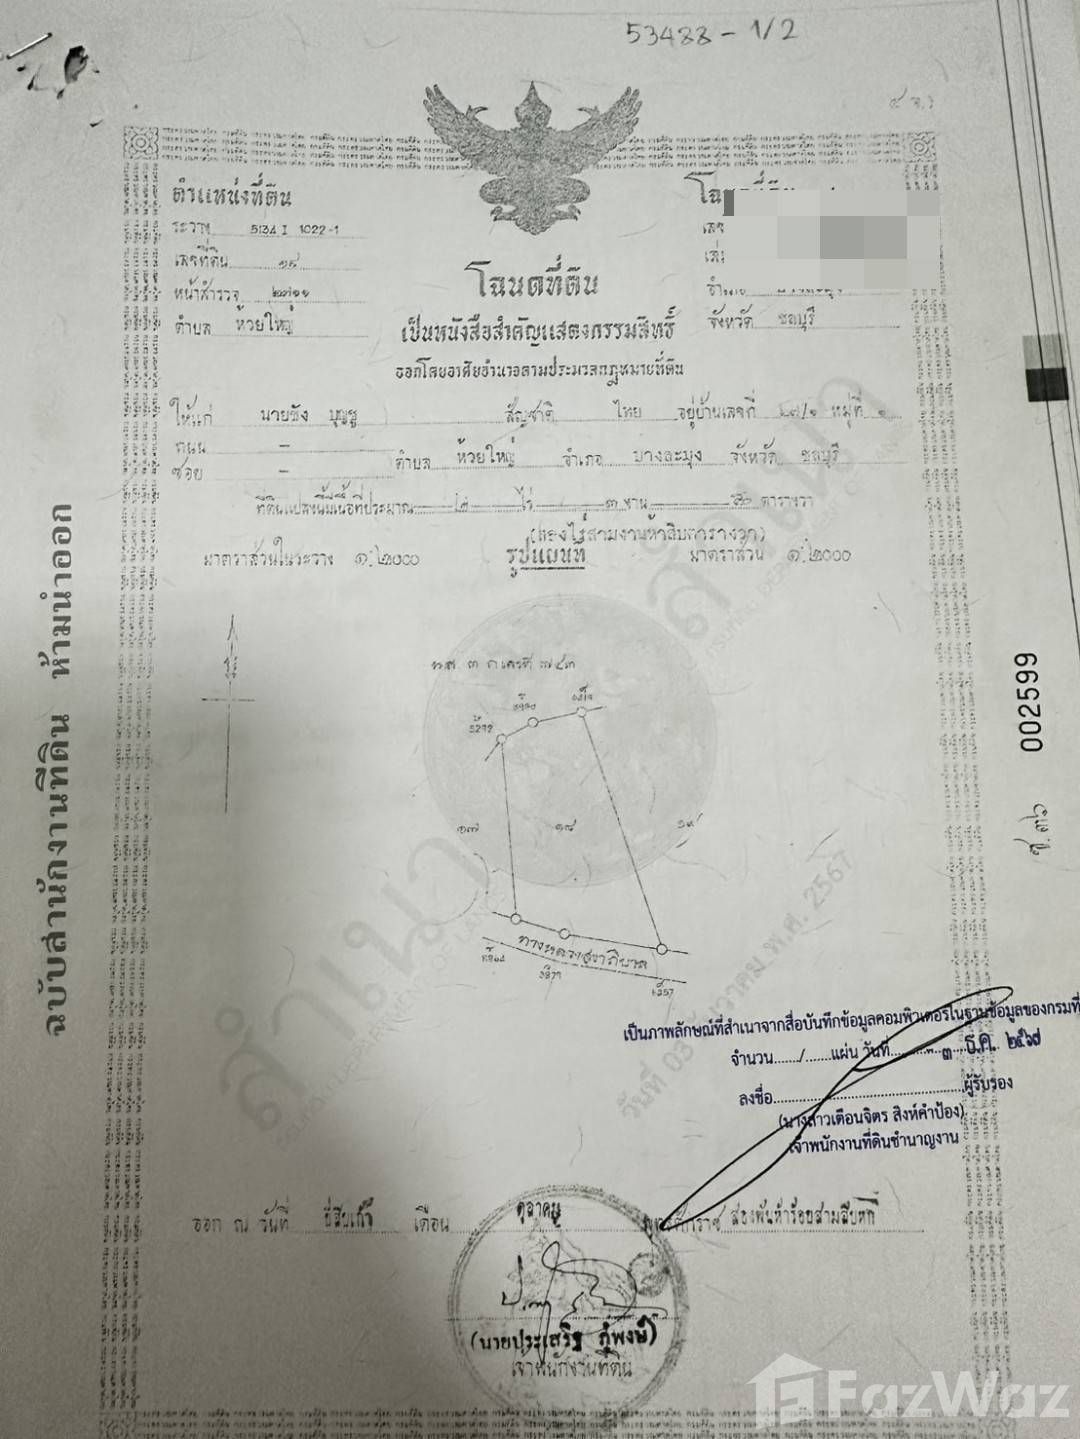 53488 - 1/2
ตำแหน่งที่ดิน
ระวาง 5134 I 1022-1
เลขที่ดิน ๑๘
หน้าสำรวจ
ตำบล ห้วยใหญ่
โฉนดที่ดิน
เลข
เล่ม
อำเภอ บางละมุง
จังหวัด ชลบุรี
โฉนดที่ดิน
เป็นหนังสือสำคัญแสดงกรรมสิทธิ์
ออกโดยอาศัยอำนาจตามประมวลกฎหมายที่ดิน
ให้แก่ นายชัง บุญชู สัญชาติ ไทย อยู่บ้านเลขที่ ๒๗/๑ หมู่ที่ ๑
ถนน -
ซอย - ตำบล ห้วยใหญ่ อำเภอ บางละมุง จังหวัด ชลบุรี
ที่ดินแปลงนี้มีเนื้อที่ประมาณ ๒ ไร่ ๓ งาน ๕๐ ตารางวา
(สองไร่สามงานห้าสิบตารางวา)
มาตราส่วนในระวาง ๑:๒๐๐๐ รูปแผนที่ มาตราส่วน ๑:๒๐๐๐
๑๗
๑๘
๑๙
ทางหลวงสุขาภิบาล
ฉบับสำนักงานที่ดิน ห้ามนำออก
002599
สำเนา
วันที่ 03 ธันวาคม พ.ศ. 2567
เป็นภาพลักษณ์ที่สำเนาจากสื่อบันทึกข้อมูลคอมพิวเตอร์ในฐานข้อมูลของกรมที่
จำนวน....../......แผ่น วันที่ - ๓ ธ.ค. ๒๕๖๗
ลงชื่อ..............................ผู้รับรอง
(นางสาวเตือนจิตร สิงห์คำป้อง)
เจ้าพนักงานที่ดินชำนาญงาน
ออก ณ วันที่ ยี่สิบเก้า เดือน ตุลาคม พุทธศักราช สองพันห้าร้อยสามสิบหก
(นายประเสริฐ ภู่พงษ์)
เจ้าพนักงานที่ดิน
FazWaz